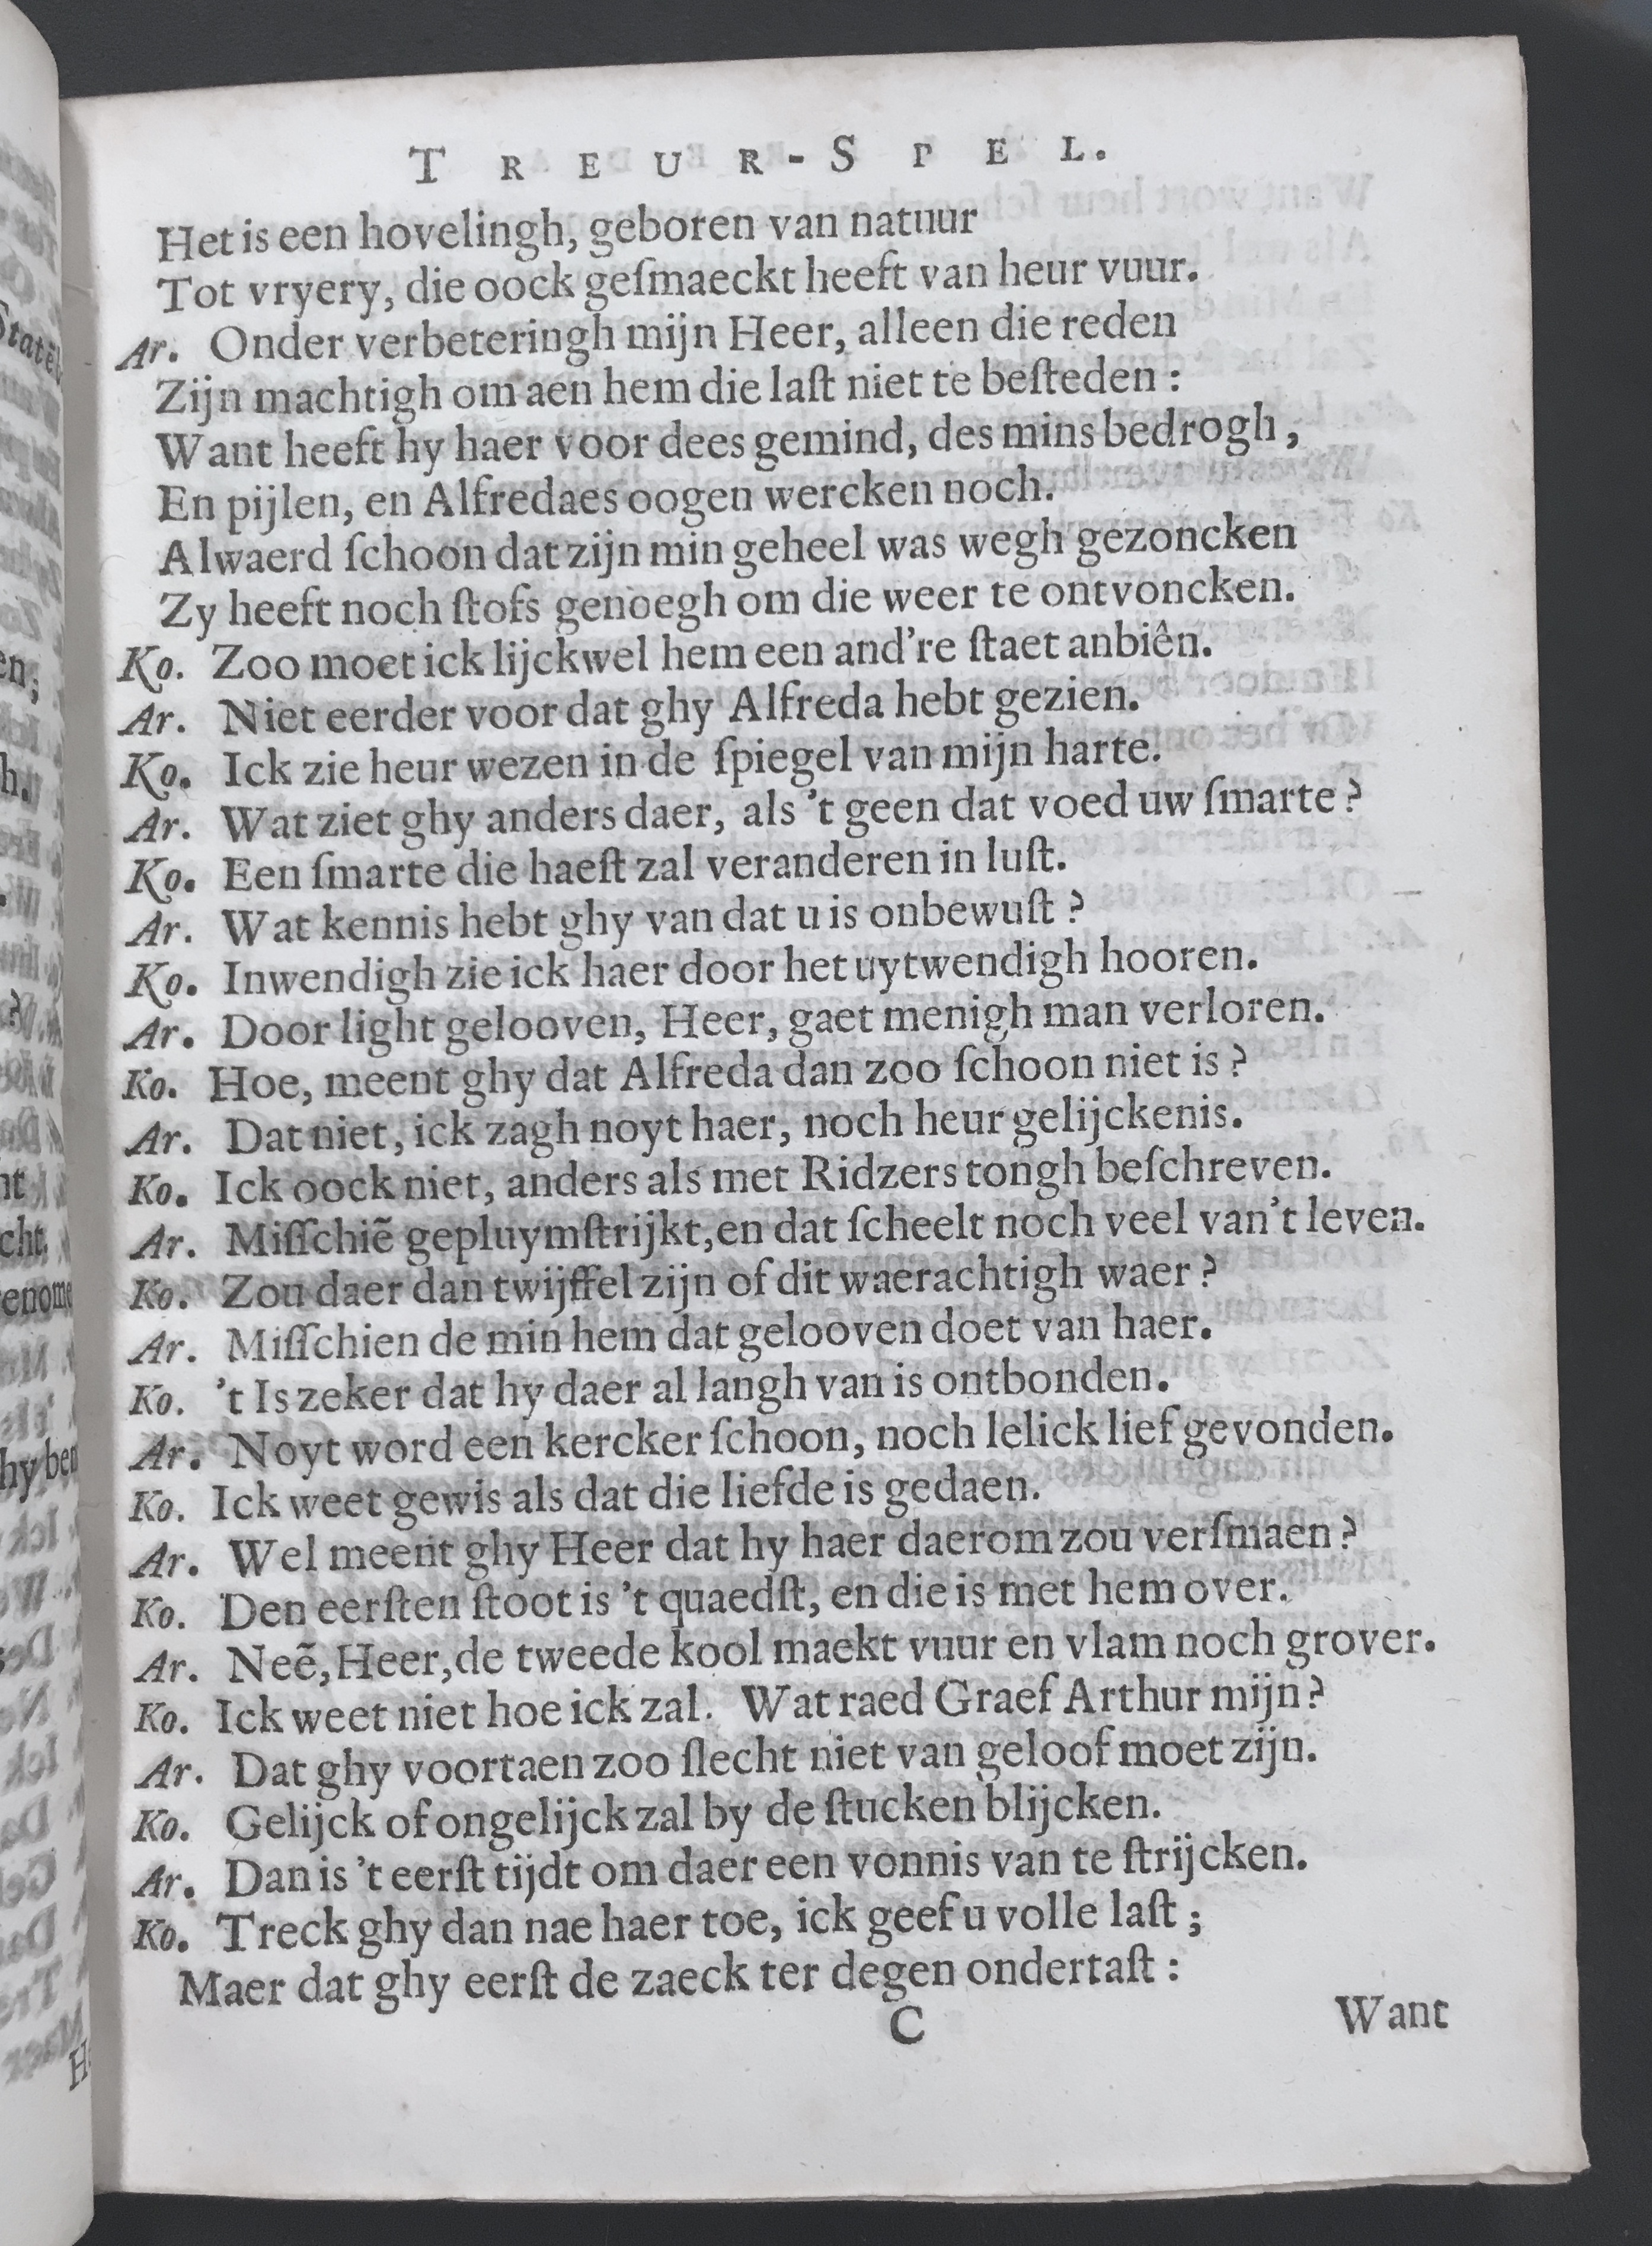 TREUR-SPEL.
Het is een hovelingh, geboren van natuur
Tot vryery, die oock geſmaeckt heeft van heur vuur.
Ar. Onder verbeteringh mijn Heer, alleen die reden
Zijn machtigh om aen hem die laſt niet te beſteden :
Want heeft hy haer voor dees gemind, des mins bedrogh,
En pijlen, en Alfredaes oogen wercken noch.
Alwaerd ſchoon dat zijn min geheel was wegh gezoncken
Zy heeft noch ſtofs genoegh om die weer te ontvoncken.
Ko. Zoo moet ick lijckwel hem een and're ſtaet anbiên.
Ar. Niet eerder voor dat ghy Alfreda hebt gezien.
Ko. Ick zie heur wezen in de ſpiegel van mijn harte.
Ar. Wat ziet ghy anders daer, als 't geen dat voed uw ſmarte?
Ko. Een ſmarte die haeſt zal veranderen in luſt.
Ar. Wat kennis hebt ghy van dat u is onbewuſt?
Ko. Inwendigh zie ick haer door het uytwendigh hooren.
Ar. Door light gelooven, Heer, gaet menigh man verloren.
Ko. Hoe, meent ghy dat Alfreda dan zoo ſchoon niet is?
Ar. Dat niet, ick zagh noyt haer, noch heur gelijckenis.
Ko. Ick oock niet, anders als met Ridzers tongh beſchreven.
Ar. Miſſchiẽ gepluymſtrijkt, en dat ſcheelt noch veel van't leven.
Ko. Zou daer dan twijffel zijn of dit waerachtigh waer?
Ar. Miſſchien de min hem dat gelooven doet van haer.
Ko. 't Is zeker dat hy daer al langh van is ontbonden.
Ar. Noyt word een kercker ſchoon, noch lelick lief gevonden.
Ko. Ick weet gewis als dat die liefde is gedaen.
Ar. Wel meent ghy Heer dat hy haer daerom zou verſmaen?
Ko. Den eerſten ſtoot is 't quaedſt, en die is met hem over.
Ar. Neẽ, Heer, de tweede kool maekt vuur en vlam noch grover.
Ko. Ick weet niet hoe ick zal. Wat raed Graef Arthur mijn?
Ar. Dat ghy voortaen zoo ſlecht niet van geloof moet zijn.
Ko. Gelijck of ongelijck zal by de ſtucken blijcken.
Ar. Dan is 't eerſt tijdt om daer een vonnis van te ſtrijcken.
Ko. Treck ghy dan nae haer toe, ick geef u volle laſt ;
Maer dat ghy eerſt de zaeck ter degen ondertaſt :
C
Want